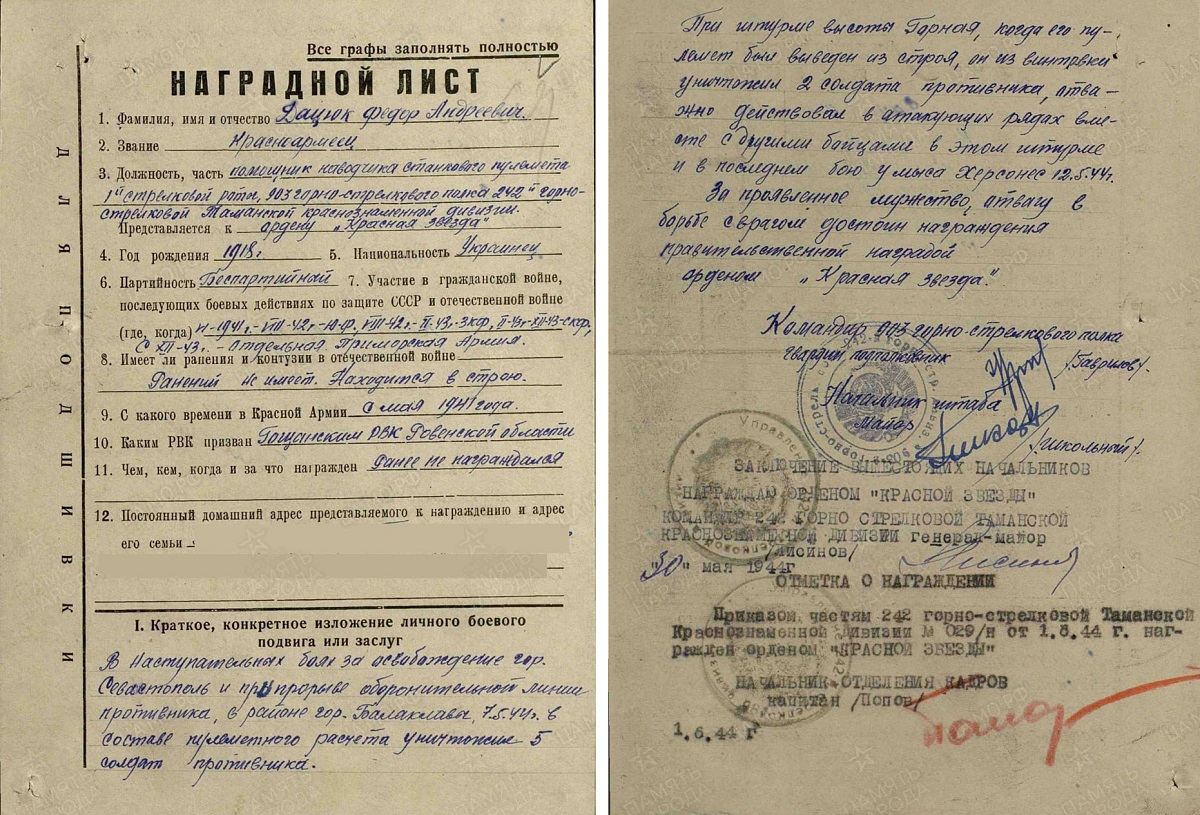 Все графы заполнять полностью
НАГРАДНОЙ ЛИСТ
1. Фамилия, имя и отчество Дацюк Федор Андреевич.
2. Звание Красноармеец
3. Должность, часть помощник наводчика станкового пулемета
1й стрелковой роты, 903 горно-стрелкового полка 242й горно-
стрелковой Таманской краснознаменной дивизии.
Представляется к ордену „Красная звезда"
4. Год рождения 1918г. 5. Национальность Украинец
6. Партийность Беспартийный 7. Участие в гражданской войне,
последующих боевых действиях по защите СССР и отечественной войне
(где, когда) 1941г.-VIII-42г-Ю.Ф, VIII-42г.-II-43г. Зкф, II-43г-XII-43-скф,
С XII-43г. - Отдельная Приморская Армия.
8. Имеет ли ранения и контузии в отечественной войне
Ранений не имеет. Находится в строю.
9. С какого времени в Красной Армии с мая 1941 года.
10. Каким РВК призван Гощанским РВК Ровенской области
11. Чем, кем, когда и за что награжден Ранее не награждался
12. Постоянный домашний адрес представляемого к награждению и адрес
его семьи
ДЛЯ ПОДШИВКИ
I. Краткое, конкретное изложение личного боевого
подвига или заслуг
В наступательных боях за освобаждение гор.
Севастополь и при прорыве оборонительной линии
противника, в районе гор. Балаклава, 7.5.44г. в
составе пулеметного расчета уничтожил 5
солдат противника.
При штурме высоты Горная, когда его пу-
лемет был выведен из строя, он из винтовки
уничтожил 2 солдата противника, отва-
жно действовал в атакующих рядах вме-
сте с другими бойцами в этом штурме
и в последнем бою у мыса Херсонес 12.5.44г.
За проявленное мужество, отвагу в
борьбе с врагом достоин награждения
правительственной наградой
орденом „Красная звезда".
Командир 903 горно-стрелкового полка
Гвардии подполковник /Гаврилов/.
Начальник штаба
Майор /Школьный/.
ЗАКЛЮЧЕНИЕ ВЫШЕСТОЯЩИХ НАЧАЛЬНИКОВ
НАГРАЖДАЮ ОРДЕНОМ "КРАСНОЙ ЗВЕЗДЫ"
КОМАНДИР 242 ГОРНО СТРЕЛКОВОЙ ТАМАНСКОЙ
КРАСНОЗНАМЕННОЙ ДИВИЗИИ генерал-майор
/ЛИСИНОВ/
"30" мая 1944г
ОТМЕТКА О НАГРАЖДЕНИИ
Приказом частям 242 горно-стрелковой Таманской
Краснознаменной Дивизии № 029/н от 1.6.44 г. наг-
ражден орденом "КРАСНОЙ ЗВЕЗДЫ"
НАЧАЛЬНИК ОТДЕЛЕНИЯ КАДРОВ
капитан /Попов/
1.6.44 г